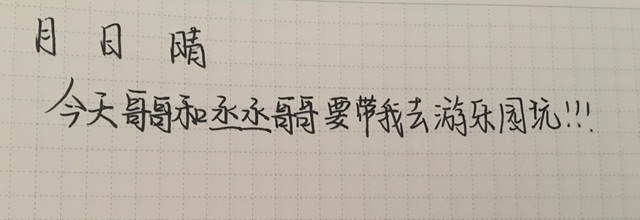 月 日 晴
今天哥哥和丞丞哥哥要带我去游乐园玩!!!